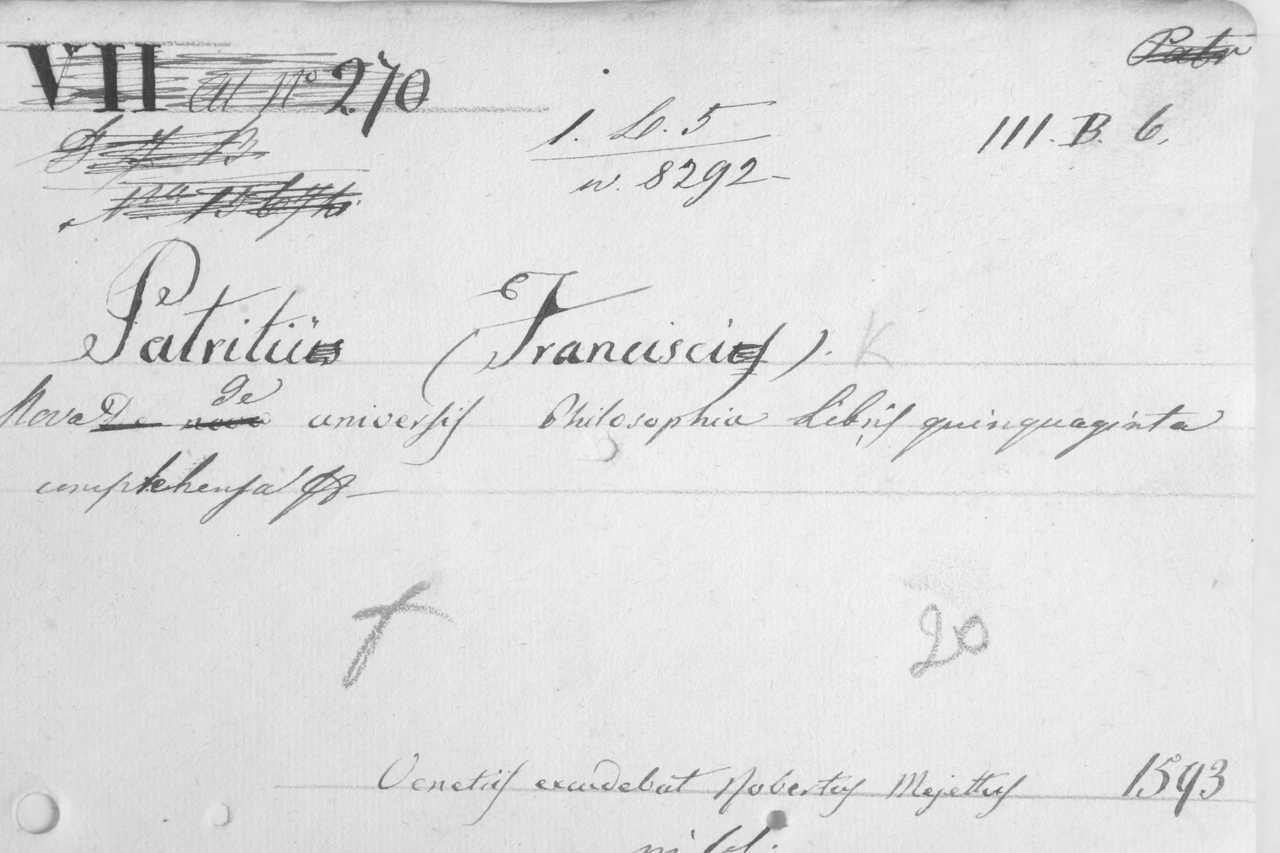 VII All N° 270
Patr
1. Lo. 5
n. 8292
III. B. 6.
Patritii (Francisci). K
Nova de universis Philosophia Libris quinquaginta
comprehensa
20
Venetiis excudebat Robertus Mejettus 1593
in fol.